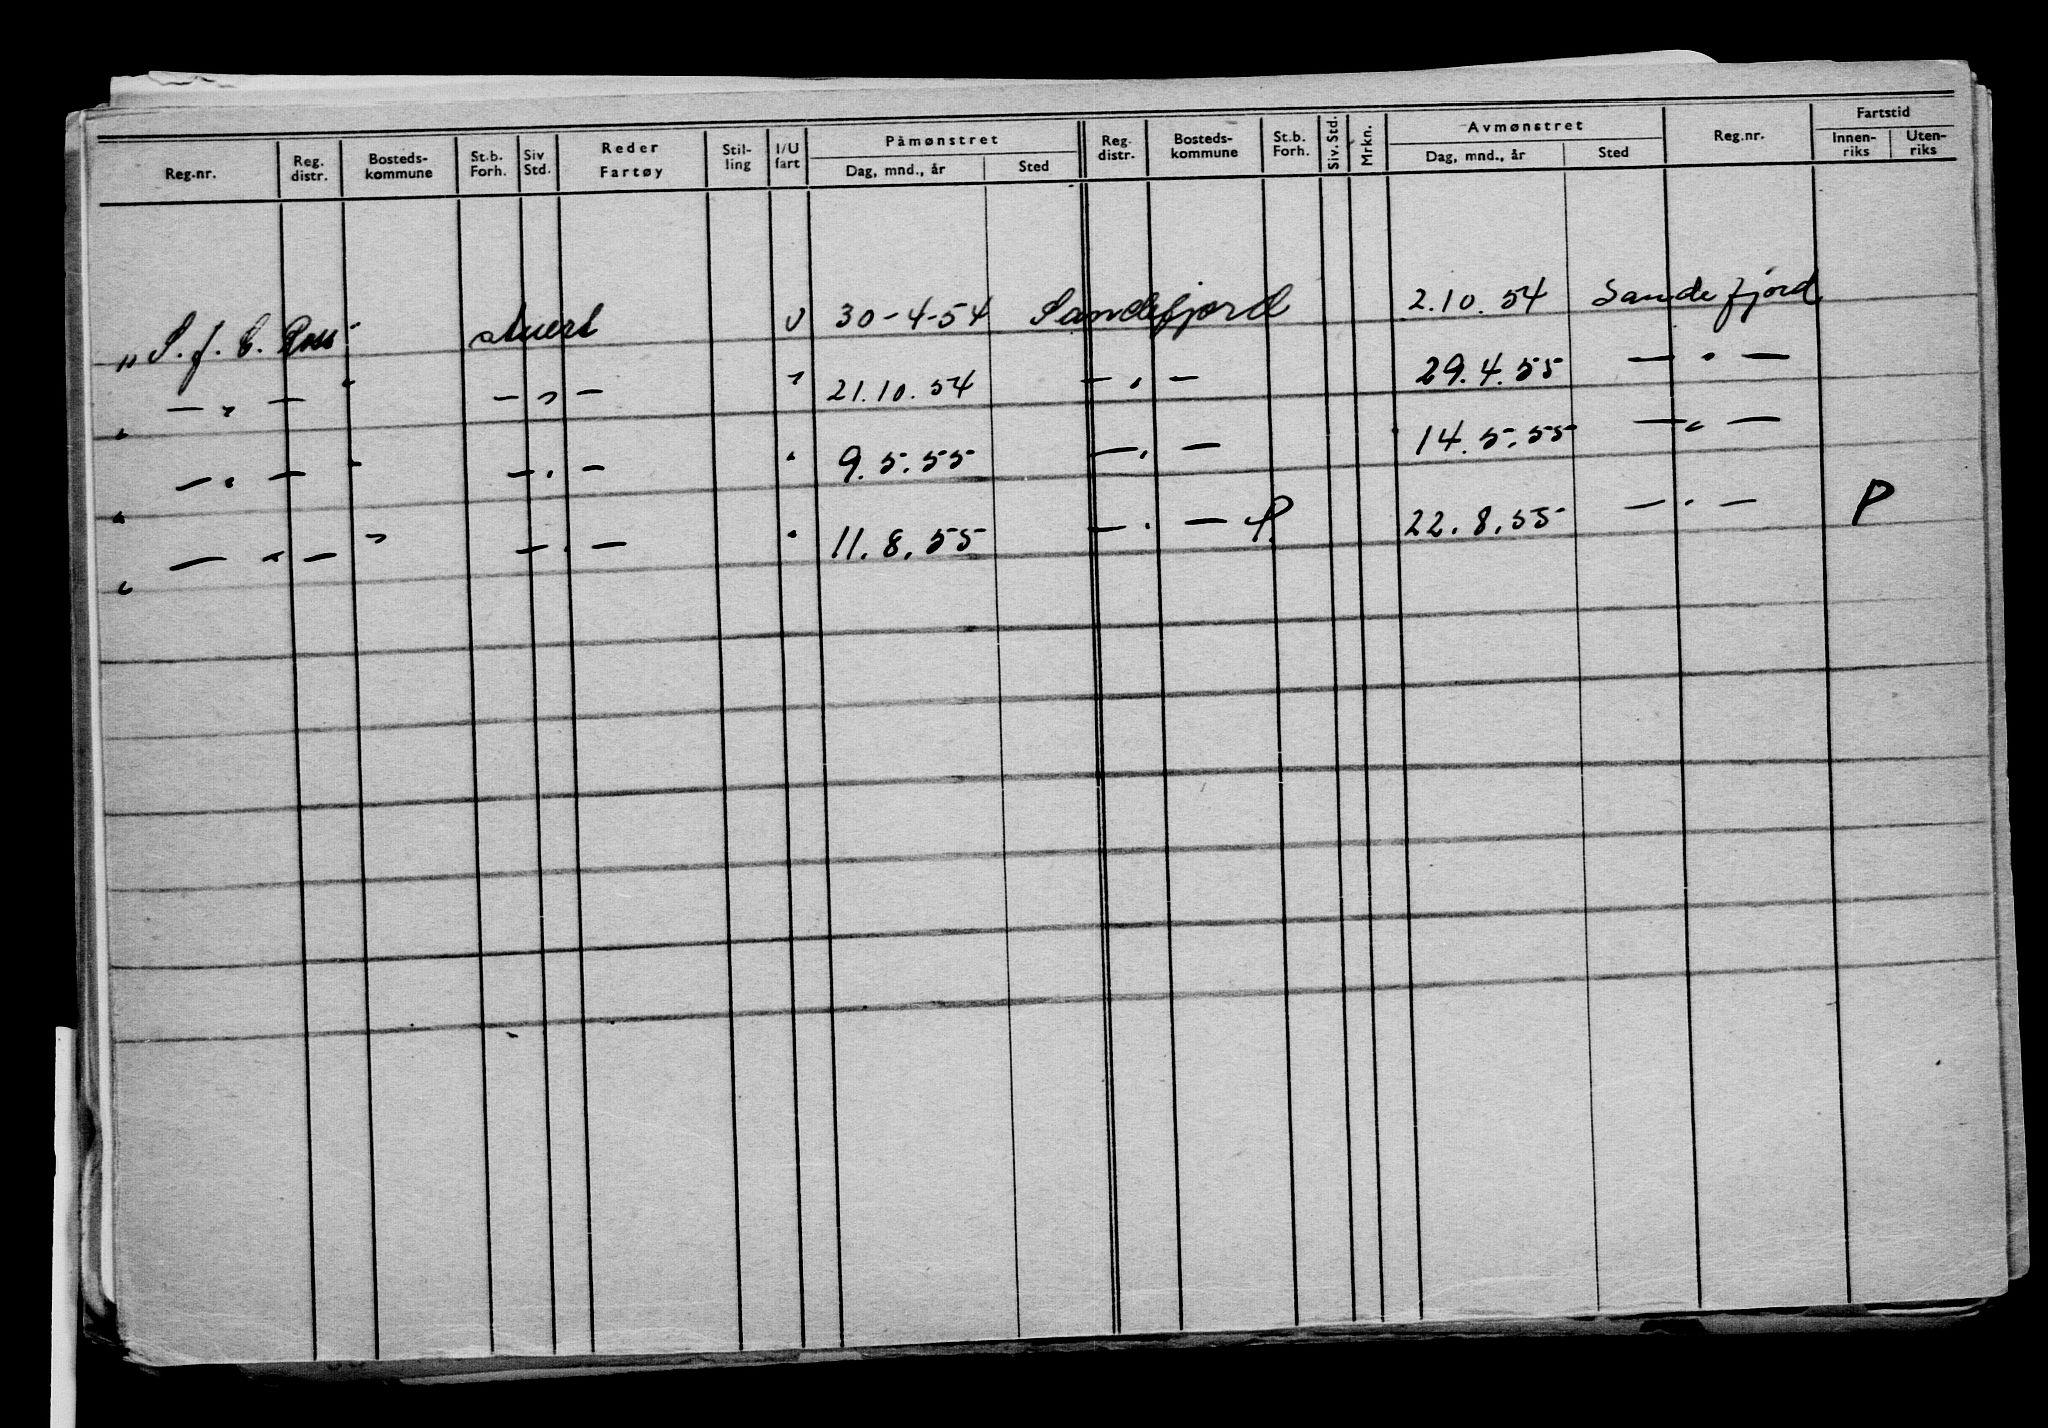 Reg.nr. Reg. distr. Bosteds-kommune St.b. Forh. Siv Std. Reder Fartøy Stil-ling I/U fart Påmønstret Dag, mnd., år Sted Reg. distr. Bosteds-kommune St.b. Forh. Siv. Std. Mrkn. Avmønstret Dag, mnd., år Sted Reg.nr. Fartstid Innen-riks Uten-riks
„ S. J. C. Ross stuert U 30-4-54 Sandefjord 2.10.54 Sandefjord
" — " — " — " — " 21.10.54 — " — 29.4.55 — " —
" — " — " — " — " 9.5.55 — " — 14.5.55 — " —
" — " — " — " — " 11.8.55 — " — P. 22.8.55 — " — P